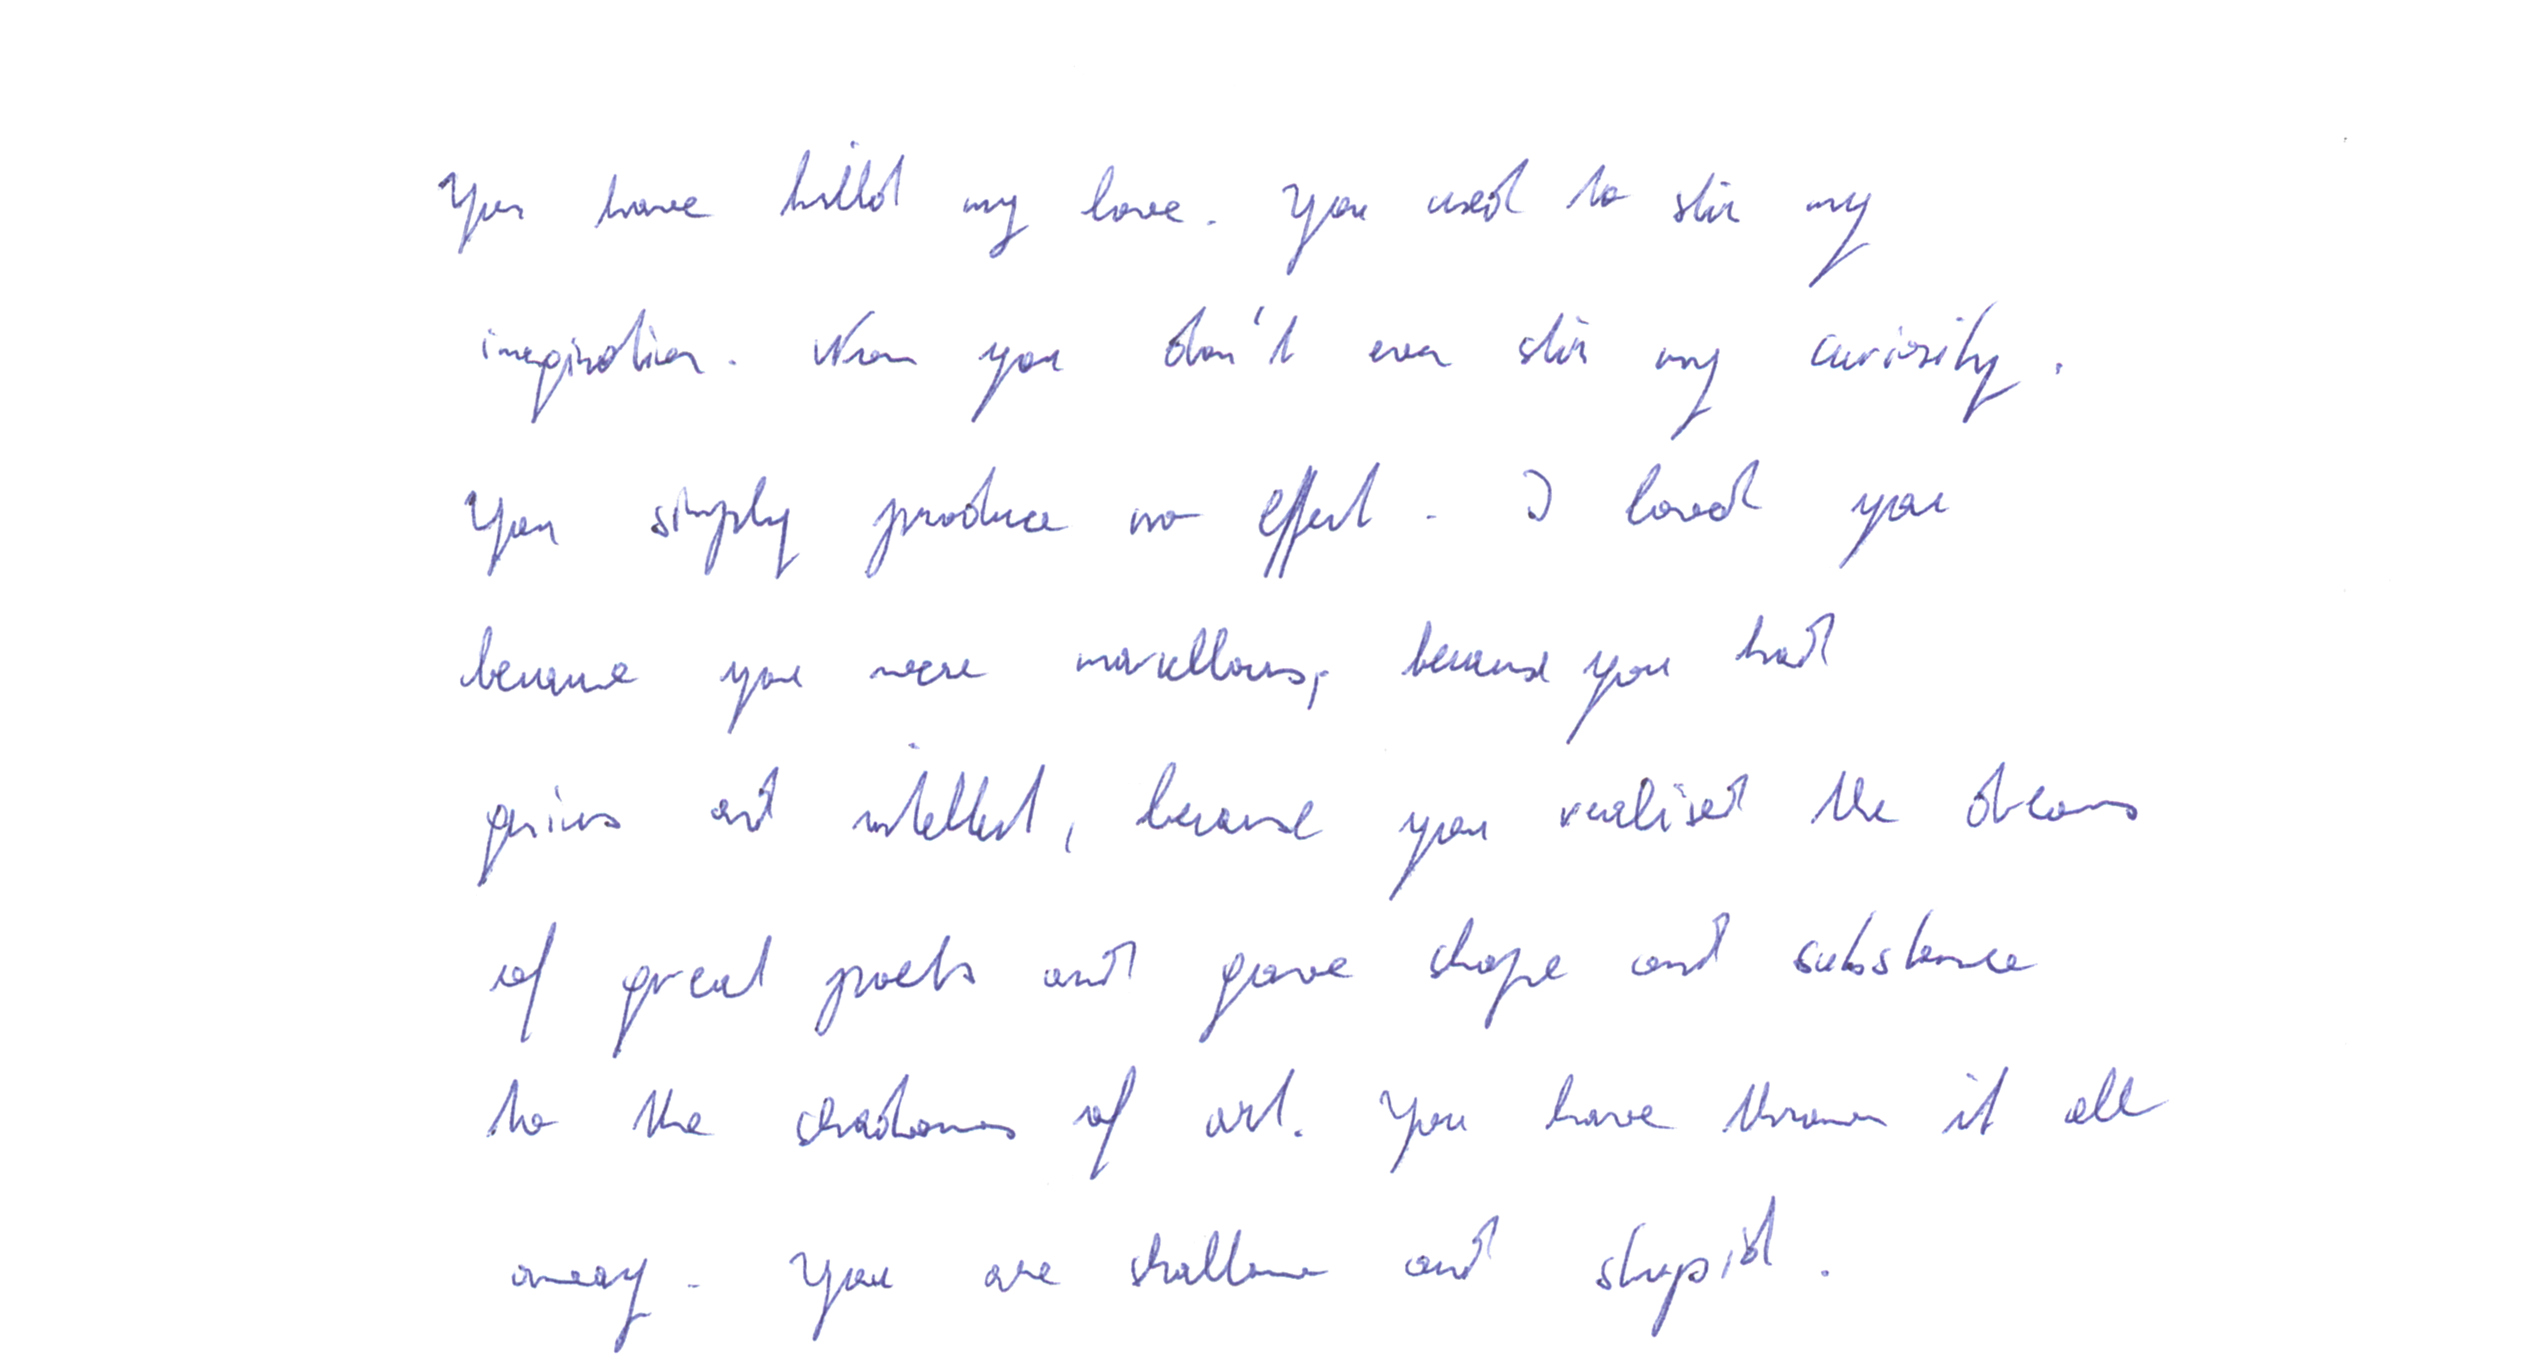 You have killed my love. You used to stir my
imagination. Now you don't even stir my curiosity.
You simply produce no effect. I loved you
because you were marvellous, because you had
genius and intellect, because you realised the dreams
of great poets and gave shape and substance
to the shadows of art. You have thrown it all
away. You are shallow and stupid.